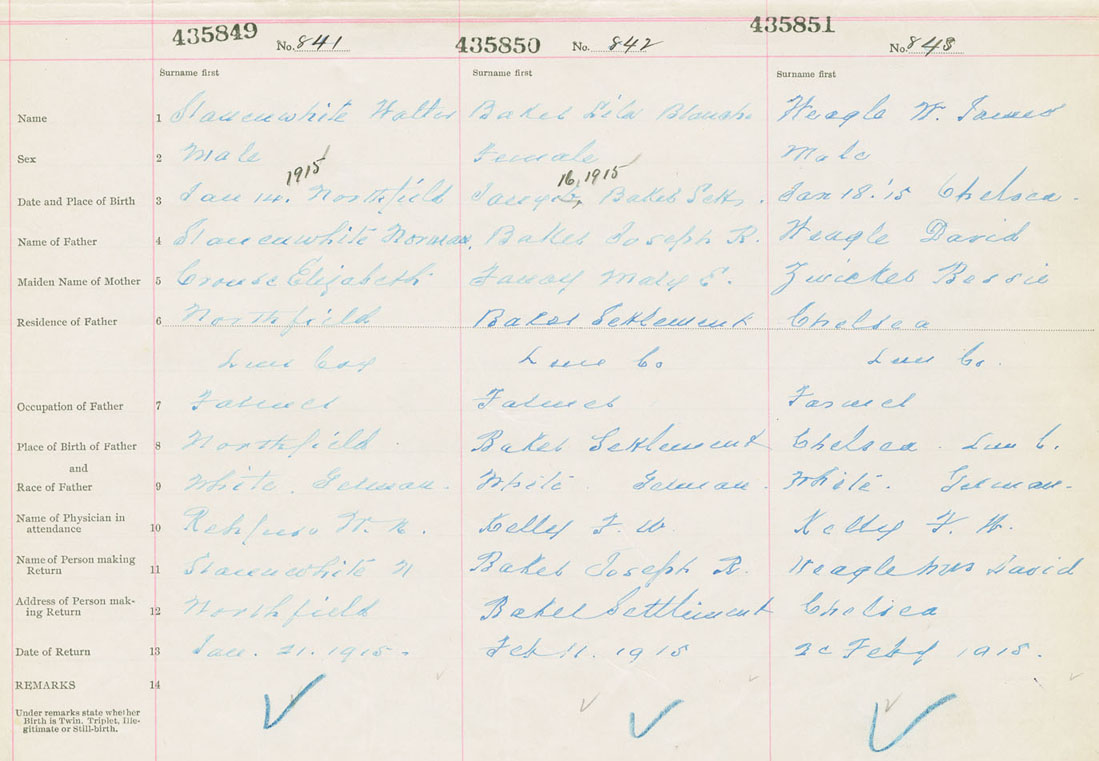 435849 No. 841 435850 No. 842 435851 No. 843
Surname first Surname first Surname first
Name 1 Stanenwhite Walter Baker Lila Blanch Weagle W. James
Sex 2 Male Female Male
1915 16, 1915
Date and Place of Birth 3 Jan 14. Northfield Baker Sett. Jan 18.'15 Chelsea.
Name of Father 4 Stanenwhite Norman Baker Joseph R. Weagle David
Maiden Name of Mother 5 Crouse Elizabeth Fancy Mary E. Zwicker Bessie
Residence of Father 6 Northfield Baker Settlement Chelsea
Lun Coy Lune Co Lun Co.
Occupation of Father 7 Farmer Farmer Farmer
Place of Birth of Father 8 Northfield Baker Settlement Chelsea. Lun C.
and
Race of Father 9 White. German. White German. White. German.
Name of Physician in
attendance 10 Rehfuss W. N. Kelly F. W. Kelley F. W.
Name of Person making
Return 11 Stanenwhite N Baker Joseph R. Weagle Mrs David
Address of Person mak-
ing Return 12 Northfield Baker Settlement Chelsea
Date of Return 13 Jan. 21. 1915. Feb 11. 1915 Feby 1915.
REMARKS 14
Under remarks state whether
Birth is Twin, Triplet, Ille-
gitimate or Still-birth.